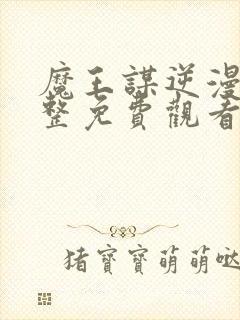 魔王謀逆漫
整免費觀看
猪寶寶萌萌哒